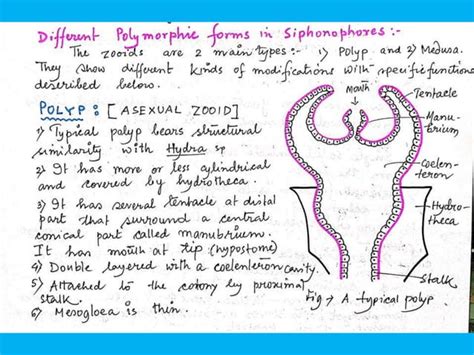 Different Polymorphic forms in Siphonophores:-
The zooids are 2 main types:- 1) Polyp and 2) Medusa.
They show different kinds of modifications with specific functions
described below.
POLYP: [ASEXUAL ZOOID]
1) Typical polyp bears structural
similarity with Hydra sp
2) It has more or less cylindrical
and covered by hydrotheca.
3) It has several tentacle at distal
part that surround a central
conical part called manubrium.
It has mouth at tip (hypostome)
4) Double layered with a coelenteron cavity.
5) Attached to the colony by proximal
stalk.
6) Mesogloea is thin.
Mouth
Tentacle
Manu-
brium
Coelen-
teron
Hydro-
theca
Stalk
Fig → A typical polyp